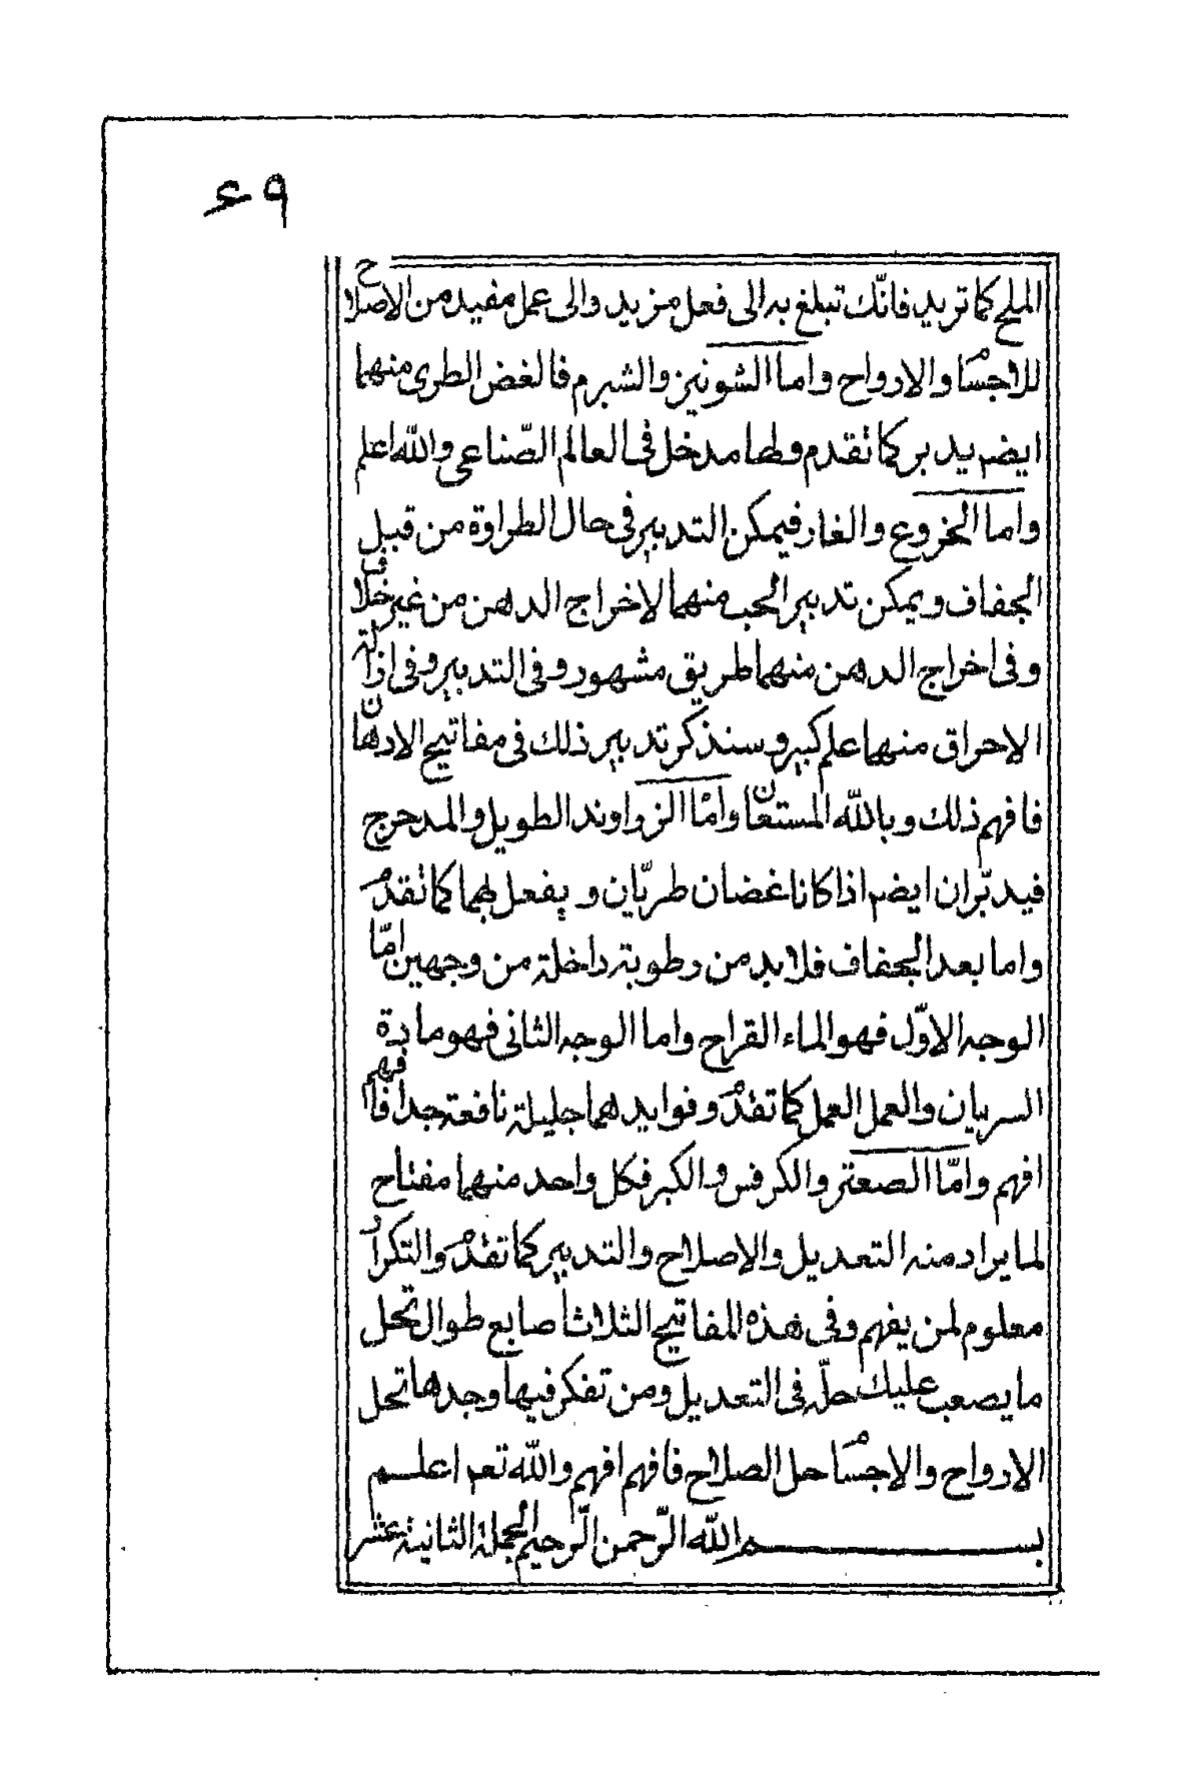 ع٩
الملح كما تريد فانّك تبلغ به الى فعل مزيد والى عمل مفيد من الاصلاح
للاجسام والارواح واما الشونيز والشبرم فالغض الطرى منهما
ايضم يدبر كما تقدم ولها مدخل فى العالم الصّناعى والله اعلم
واما الخروع والغار فيمكن التدبير فى حال الطراوة من قبيل
الجفاف ويمكن تدبير الحب منهما لاخراج الدهن من غير خلاف
وفى اخراج الدهن منهما طريق مشهور وفى التدبير وفى ازالة
الاحراق منهما علم كبير وسنذكر تدبير ذلك فى مفاتيح الادهان
فافهم ذلك وبالله المستعان وامّا الزراوند الطويل والمدحرج
فيدبّران ايضم اذا كانا غضان طريّان ويفعل بهما كما تقدم
واما بعد الجفاف فلابد من رطوبة داخلة من وجهين امّا
الوجه الاوّل فهو الماء القراح واما الوجه الثانى فهو مادة
السريان والعمل العمل كما تقدم وفوايدهما جليلة نافعة جدا فافهم
افهم وامّا الصعتر والكرفس والكبر فكل واحد منهما مفتاح
لما يراد منه التعديل والاصلاح والتدبير كما تقدم والتكرار
معلوم لمن يفهم وفى هذه المفاتيح الثلاث اصابع طوال تحل
ما يصعب عليك حلّه فى التعديل ومن تفكر فيها وجدها تحل
الارواح والاجسام حل الصلاح فافهم افهم والله تعم اعلم
بسم الله الرّحمن الرّحيم الجملة الثانية عشر